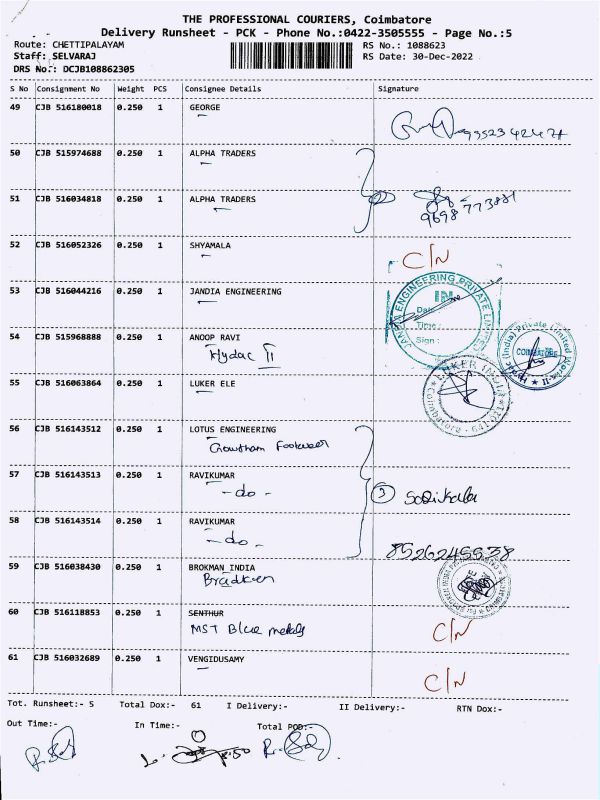 THE PROFESSIONAL COURIERS, Coimbatore
Delivery Runsheet - PCK - Phone No.:0422-3505555 - Page No.:5
Route: CHETTIPALAYAM RS No.: 1088623
Staff: SELVARAJ RS Date: 30-Dec-2022
DRS No.: DCJB108862305
S No Consignment No Weight PCS Consignee Details Signature
49 CJB 516180018 0.250 1 GEORGE
50 CJB 515974688 0.250 1 ALPHA TRADERS
51 CJB 516034818 0.250 1 ALPHA TRADERS
9698773881
52 CJB 516052326 0.250 1 SHYAMALA
C/N
53 CJB 516044216 0.250 1 JANDIA ENGINEERING
ENGINEERING PRIVATE LIMITED
IN
Date
Time:
Sign:
54 CJB 515968888 0.250 1 ANOOP RAVI
Hydac II
(India) Private Limited
COIMBATORE
55 CJB 516063864 0.250 1 LUKER ELE
LUKER INDIA
Coimbatore - 641
56 CJB 516143512 0.250 1 LOTUS ENGINEERING
Gowtham Footwear
57 CJB 516143513 0.250 1 RAVIKUMAR
-do- 3
58 CJB 516143514 0.250 1 RAVIKUMAR
-do-
59 CJB 516038430 0.250 1 BROKMAN INDIA
Bradken
60 CJB 516118853 0.250 1 SENTHUR
MST Blue metals C/N
61 CJB 516032689 0.250 1 VENGIDUSAMY
C/N
Tot. Runsheet:- 5 Total Dox:- 61 I Delivery:- II Delivery:- RTN Dox:-
Out Time:- In Time:- Total POD:-